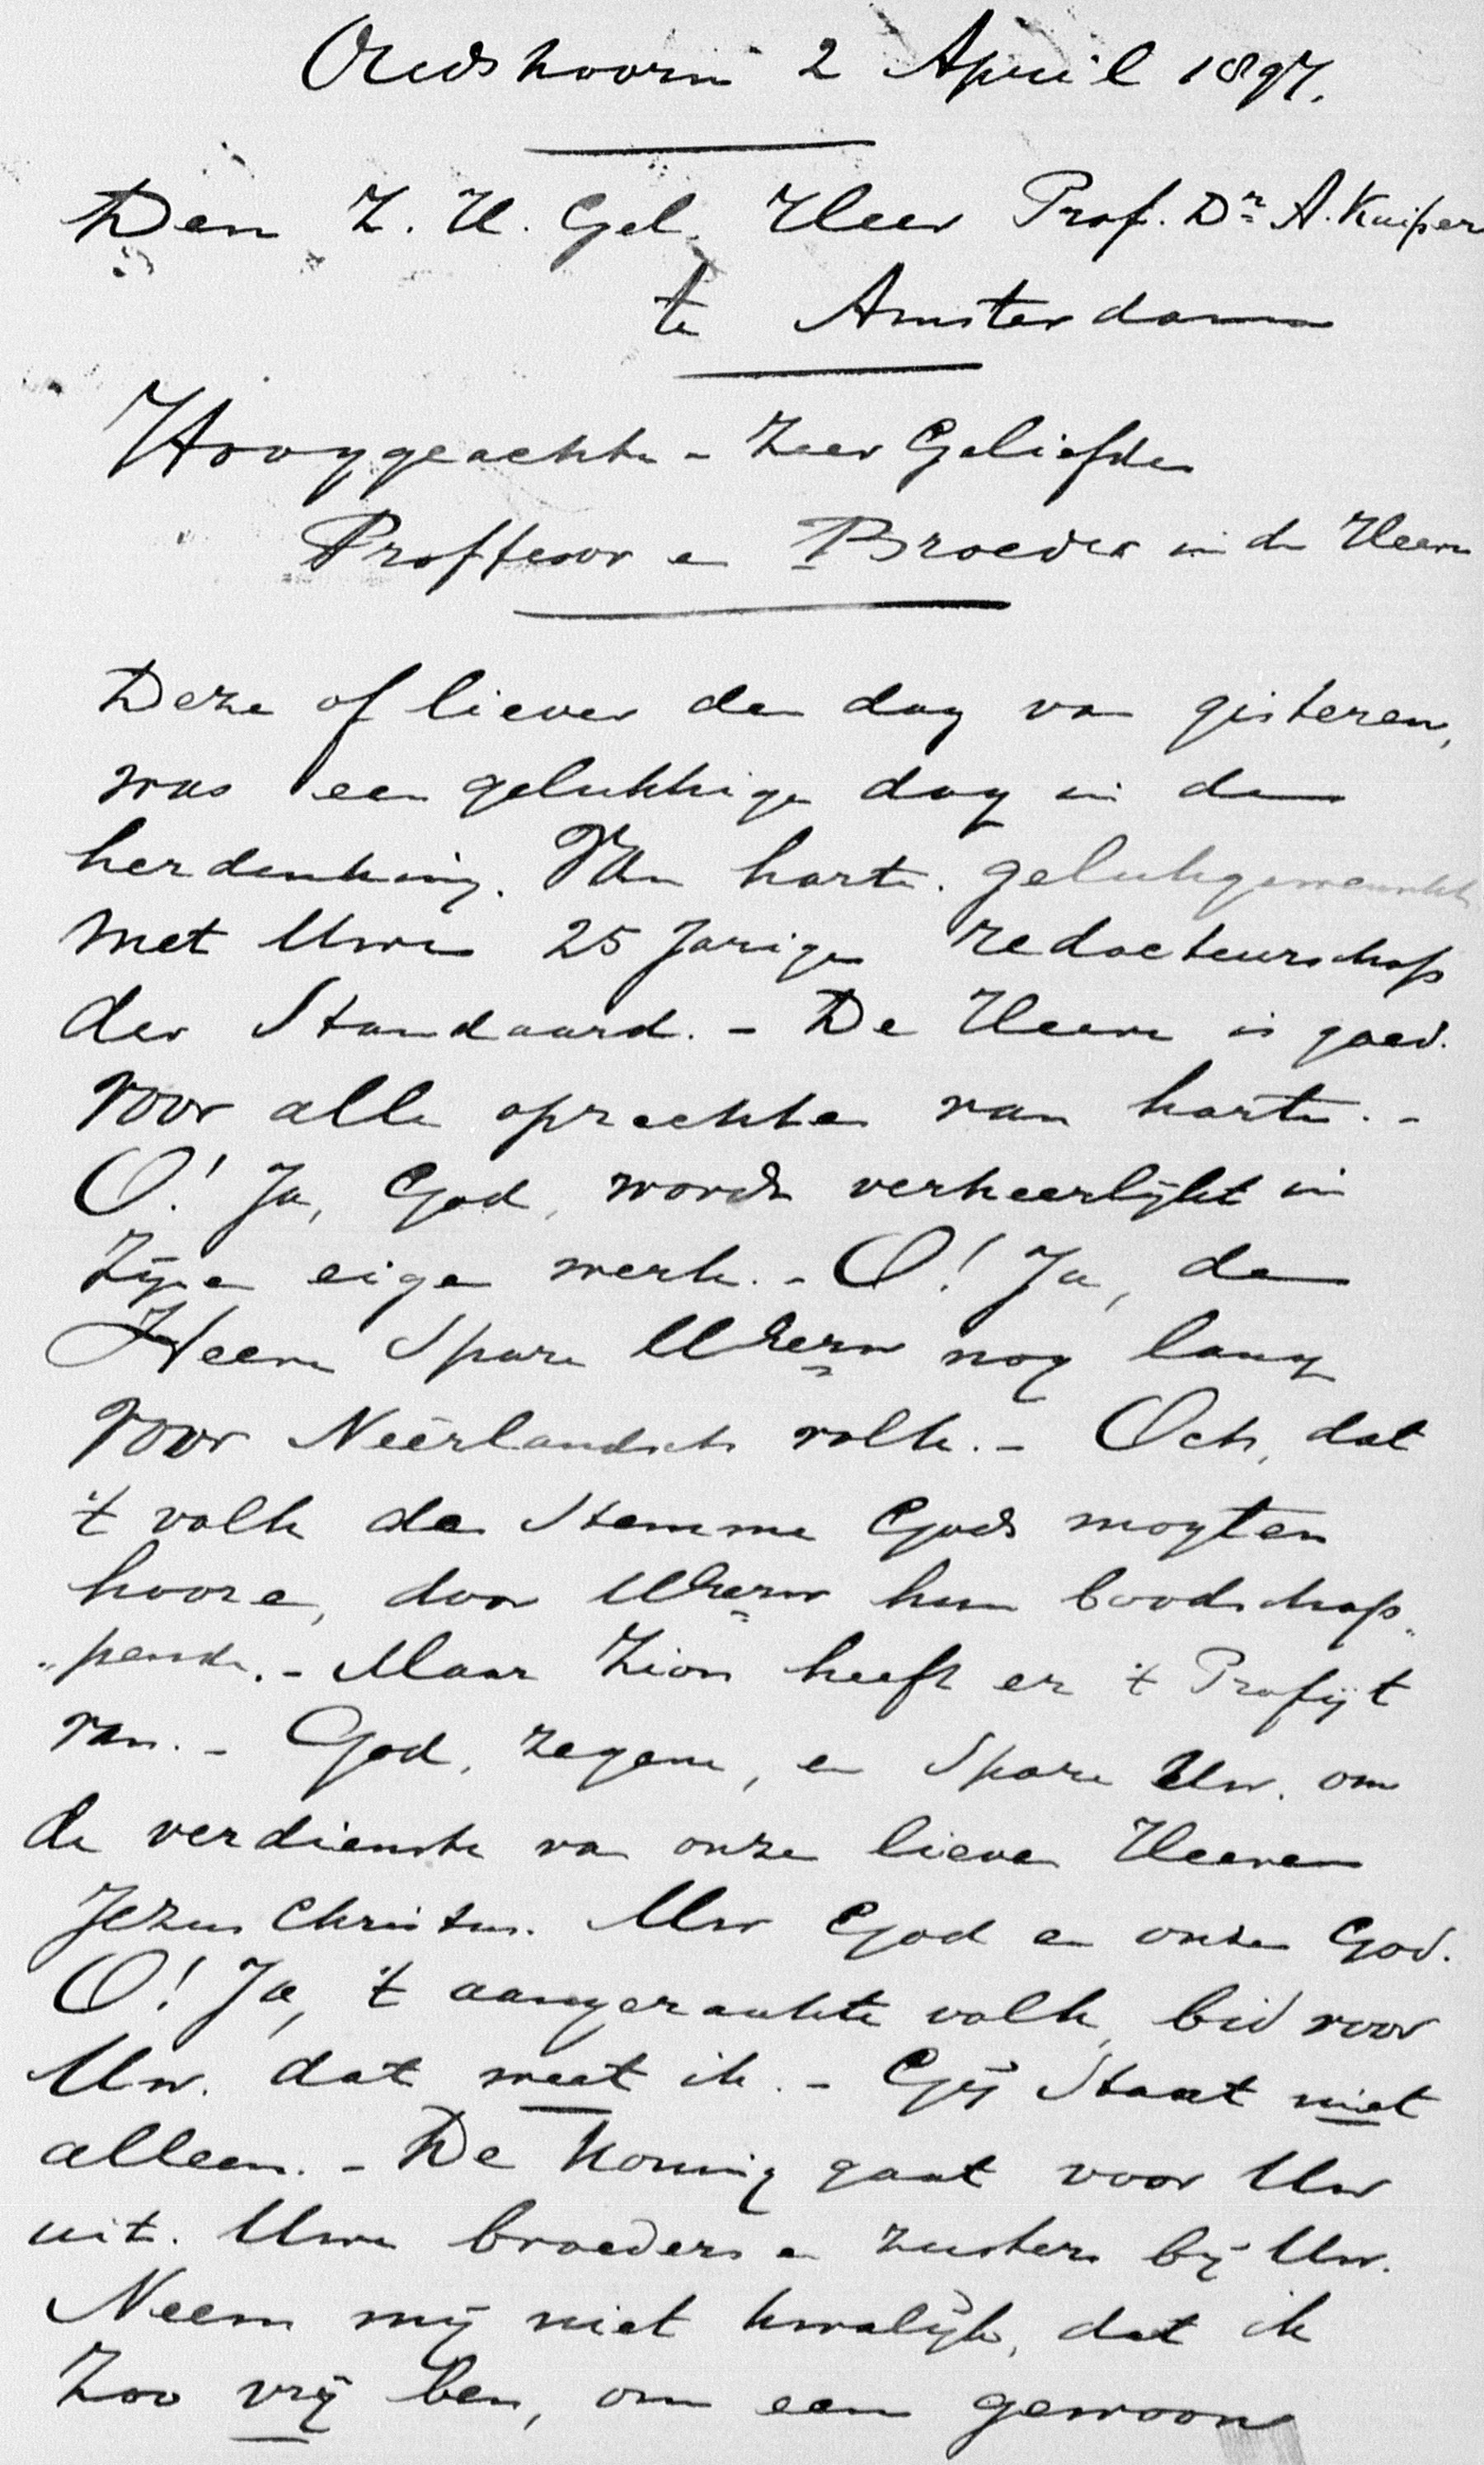 Oudshoorn 2 April 1897.
Den Z. H. Gel. Heer Prof. Dr A. Kuiper
te Amsterdam
Hooggeachte - Zeer Geliefde
Proffesor en Broeder in de Heere
Deze of liever de dag van gisteren,
was een gelukkige dag in de
herdenking. Van harte. geluhgewenscht
met Uwe 25 Jarige redacteurschap
der Standaard. - De Heere is goed.
voor alle oprechte van harte. -
O! Ja, God, wordt verheerlijkt in
Zijne eige werk. - O! Ja, de
Heere Spare nog lang
voor Neêrlandsch volk. - Och, dat
't volk de Stemme Gods mogten
hoore, door hun boodschap„
„pende. - Maar Zion heeft er 't Profijt
van. - God, zegene, en Spare Uw. om
de verdienste van onze lieve Heere
Jezus Christus. Uw God en onze God.
O! Ja, 't aangeraakte volk, bid voor
Uw. dat weet ik. - Gij Staat niet
alleen. - De Koning gaat voor Uw
uit. Uwe broeders en zusters bij Uw.
Neem mij niet kwalijk, dat ik
Zoo vrij ben, om een gewoon